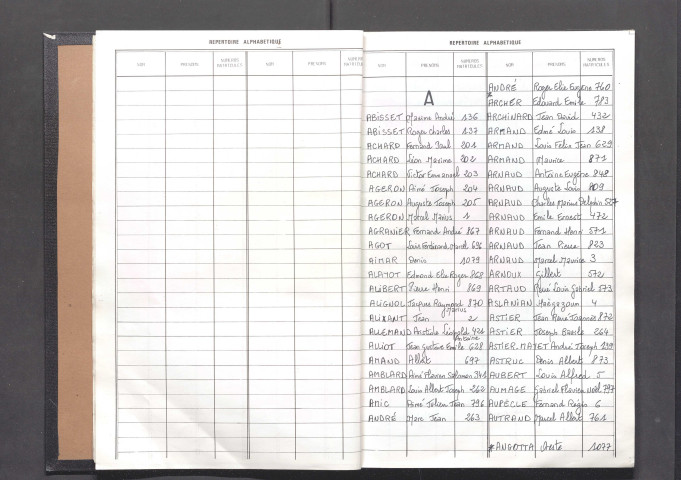 REPERTOIRE ALPHABETIQUE
NOM PRENOMS NUMEROS MATRICULES NOM PRENOMS NUMEROS MATRICULES
REPERTOIRE ALPHABETIQUE
NOM PRENOMS NUMEROS MATRICULES NOM PRENOMS NUMEROS MATRICULES
A
ABISSET Maxime André 136
ABISSET Roger Charles 137
ACHARD Fernand Paul 201
ACHARD Léon Maxime 202
ACHARD Victor Emmanuel 203
AGERON Aimé Joseph 204
AGERON Auguste Joseph 205
AGERON Marcel Marius 1
AGRANIER Fernand André 167
AGOT Louis Ferdinand Marcel 696
AIMAR Denis 1079
Edmond Elie Roger 868
ALIBERT Pierre Henri 869
Jacques Raymond Marius 870
Jean 2
ALLEMAND Aristide Léopold Antoine 421
ALLIOT Jean Gustave Emile 628
AMAND Albert 697
AMBLARD Aimé Flavien Salomon 341
AMBLARD Louis Albert Joseph 262
AMIC Aimé Julien Jean 796
ANDRÉ Marc Jean 263
ANDRÉ Roger Elie Eugène 760
ARCHER Edouard Emile 783
ARCHINARD Jean David 432
ARMAND Edmé Louis 138
ARMAND Louis Félix Jean 629
ARMAND Maurice 871
ARNAUD Antoine Eugène 848
ARNAUD Auguste Louis 109
ARNAUD Charles Marius Delphin 527
ARNAUD Emile Ernest 472
ARNAUD Fernand Henri 571
ARNAUD Jean Pierre 823
ARNAUD Marcel Maurice 3
ARNOUX Gilbert 572
ARTAUD René Louis Gabriel 573
ASLANIAN 4
ASTIER Jean René 872
ASTIER Joseph Basile 264
ASTIER.MAYET André Joseph 139
ASTRUC Denis Albert 873
AUBERT Louis Alfred 5
AUMAGE Gabriel Flavien Noël 797
AUPECLE Fernand Régis 6
AUTRAND Marcel Albert 761
*ANGOTTA Oreste 1077